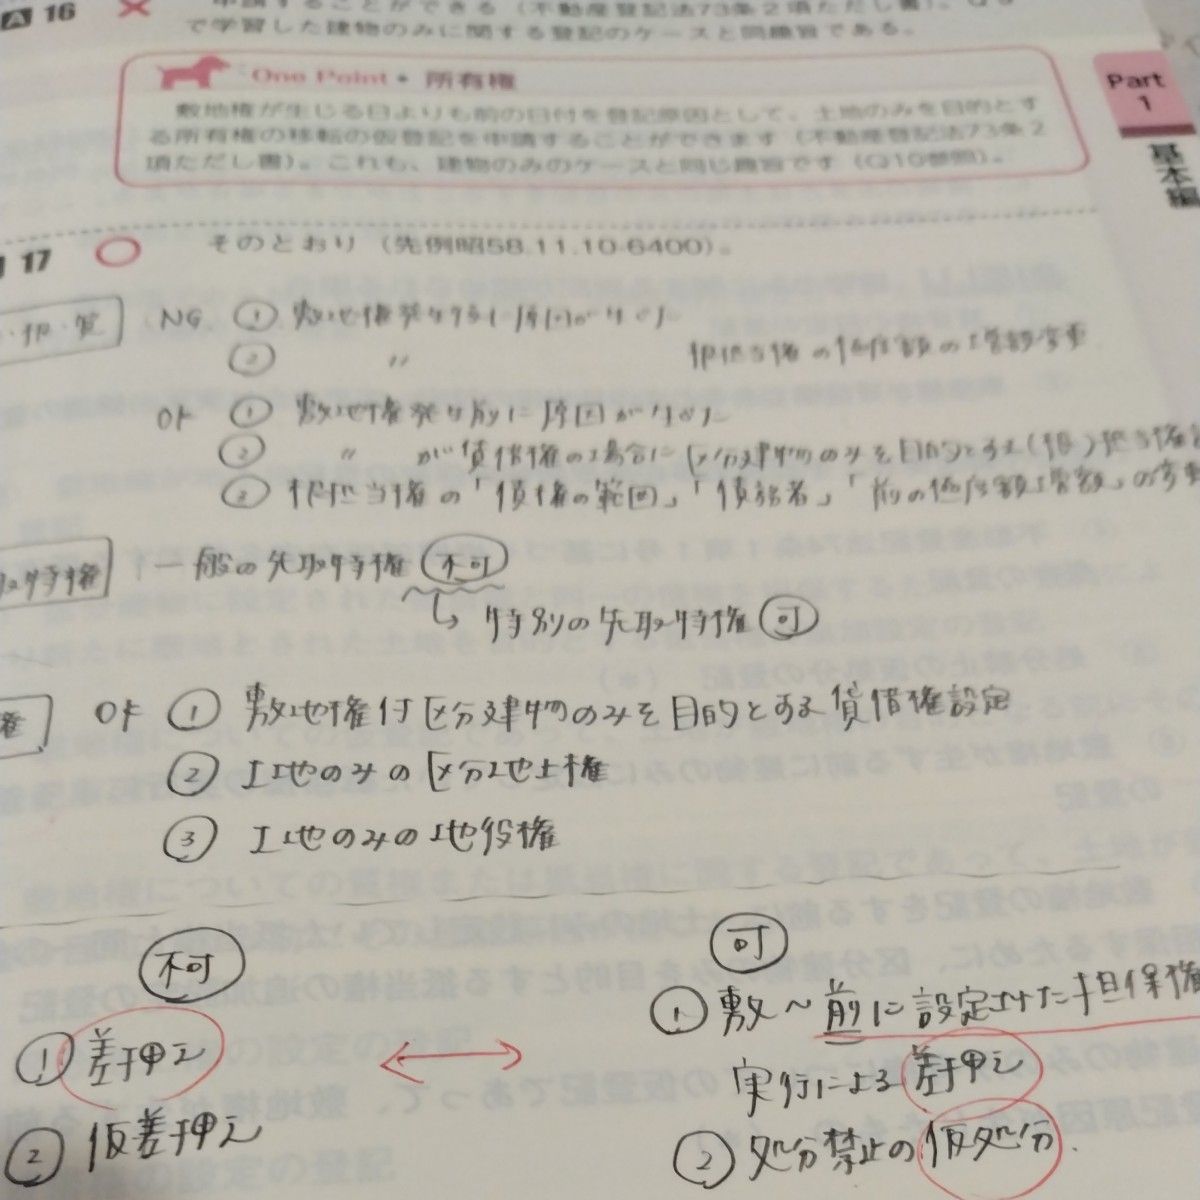 A 16 × 申請することができる（不動産登記法73条2項ただし書）。Q9
で学習した建物のみに関する登記のケースと同趣旨である。
One Point ● 所有権
敷地権が生じる日よりも前の日付を登記原因として、土地のみを目的とす
る所有権の移転の仮登記を申請することができます（不動産登記法73条2
項ただし書）。これも、建物のみのケースと同じ趣旨です（Q10参照）。
Part
1
基本編
17 ○ そのとおり（先例昭58.11.10-6400）。
・抵・質 NG ① 敷地権発生后に原因が生じた
② 〃 根抵当権の極度額の増額変更
OK ① 敷地権発生前に原因が生じた
② 〃 が賃借権の場合に区分建物のみを目的とする(根)抵当権設
③ 根抵当権の「債権の範囲」「債務者」「前の極度額増額」の変更
取特権 一般の先取特権 不可
↳ 特別の先取特権 可
権 OK ① 敷地権付区分建物のみを目的とする賃借権設定
② 土地のみの区分地上権
③ 土地のみの地役権
不可
① 差押え
② 仮差押え
可
① 敷〜前に設定された担保権
実行による差押え
② 処分禁止の仮処分.